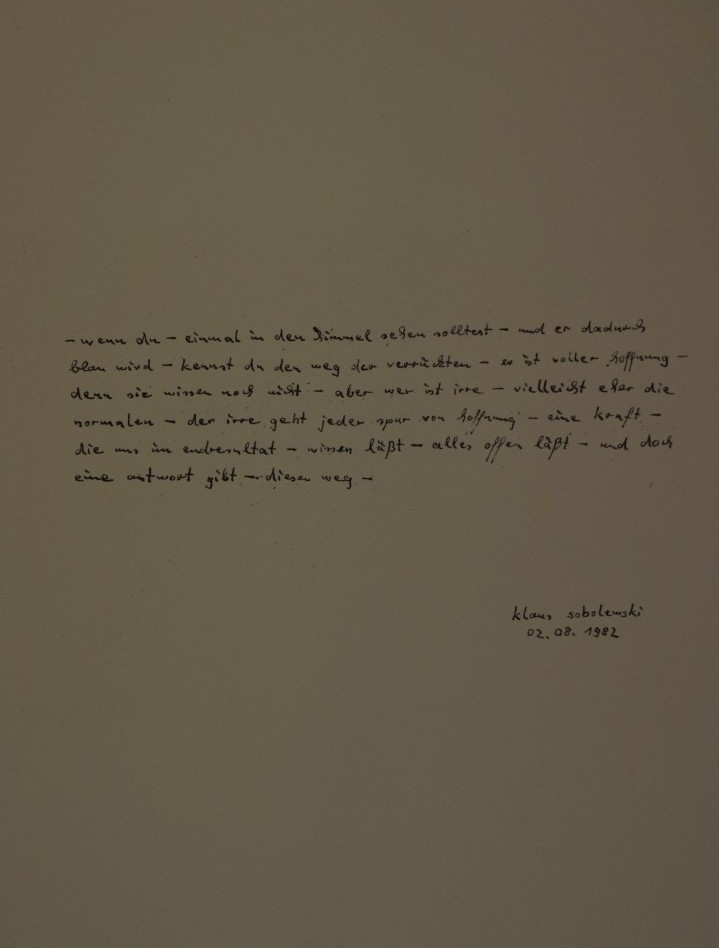 – wenn du – einmal in den himmel sehen solltest – und er dadurch
blau wird – kennst du den weg der verrückten – er ist voller hoffnung –
denn sie wissen noch nicht – aber wer ist irre – vielleicht eher die
normalen – der irre geht jeder spur von hoffnung – eine kraft –
die uns im endresultat – wissen läßt – alles offen läßt – und doch
eine antwort gibt – diesen weg –
klaus sobolewski
02.08.1982